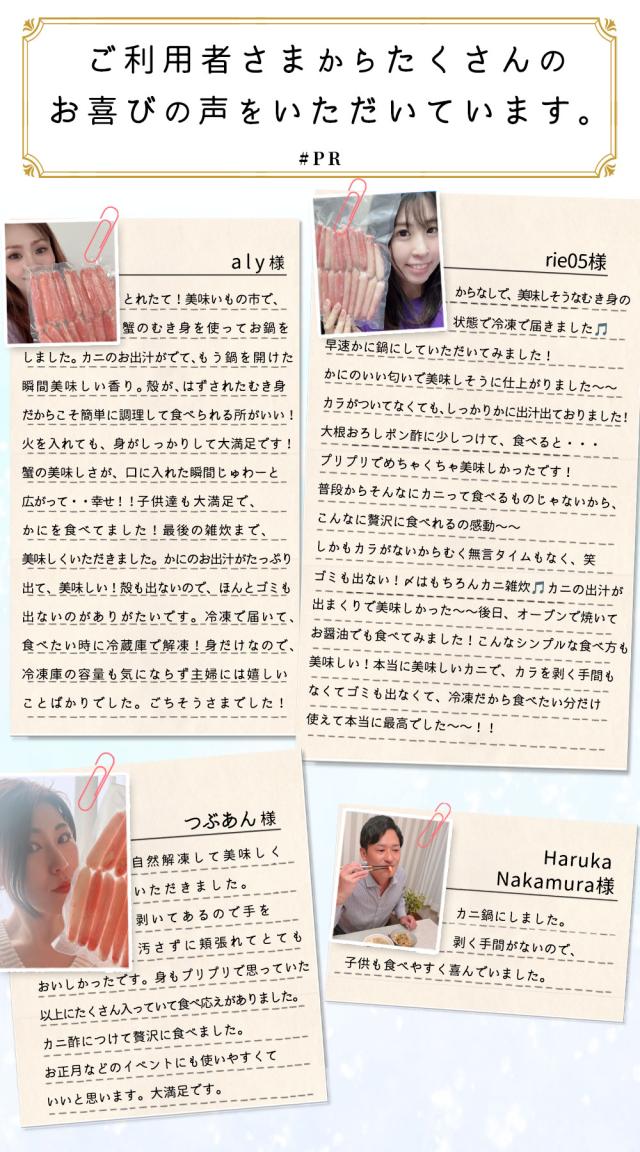 ご利用者さまからたくさんの
お喜びの声をいただいています。
#PR
aly様
とれたて！美味いもの市で、
蟹のむき身を使ってお鍋を
しました。カニのお出汁がでて、もう鍋を開けた
瞬間美味しい香り。殻が、はずされたむき身
だからこそ簡単に調理して食べられる所がいい！
火を入れても、身がしっかりして大満足です！
蟹の美味しさが、口に入れた瞬間じゅわーと
広がって・・幸せ！！子供達も大満足で、
かにを食べてました！最後の雑炊まで、
美味しくいただきました。かにのお出汁がたっぷり
出て、美味しい！殻も出ないので、ほんとゴミも
出ないのがありがたいです。冷凍で届いて、
食べたい時に冷蔵庫で解凍！身だけなので、
冷凍庫の容量も気にならず主婦には嬉しい
ことばかりでした。ごちそうさまでした！
rie05様
からなしで、美味しそうなむき身の
状態で冷凍で届きました🎵
早速かに鍋にしていただいてみました！
かにのいい匂いで美味しそうに仕上がりました〜〜
カラがついてなくても、しっかりかに出汁出ておりました！
大根おろしポン酢に少しつけて、食べると・・・
プリプリでめちゃくちゃ美味しかったです！
普段からそんなにカニって食べるものじゃないから、
こんなに贅沢に食べれるの感動〜〜
しかもカラがないからむく無言タイムもなく、笑
ゴミも出ない！〆はもちろんカニ雑炊🎵カニの出汁が
出まくりで美味しかった〜〜後日、オーブンで焼いて
お醤油でも食べてみました！こんなシンプルな食べ方も
美味しい！本当に美味しいカニで、カラを剥く手間も
なくてゴミも出なくて、冷凍だから食べたい分だけ
使えて本当に最高でした〜〜！！
つぶあん様
自然解凍して美味しく
いただきました。
剥いてあるので手を
汚さずに頬張れてとても
おいしかったです。身もプリプリで思っていた
以上にたくさん入っていて食べ応えがありました。
カニ酢につけて贅沢に食べました。
お正月などのイベントにも使いやすくて
いいと思います。大満足です。
Haruka
Nakamura様
カニ鍋にしました。
剥く手間がないので、
子供も食べやすく喜んでいました。